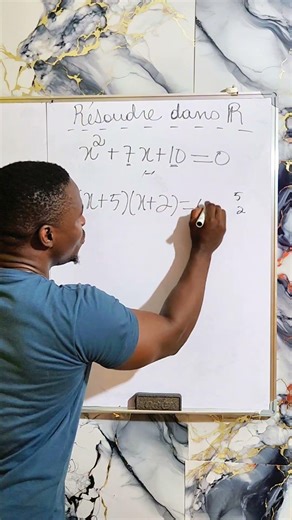 Résoudre dans ℝ
x² + 7x + 10 = 0
(x+5)(x+2) =
5
2